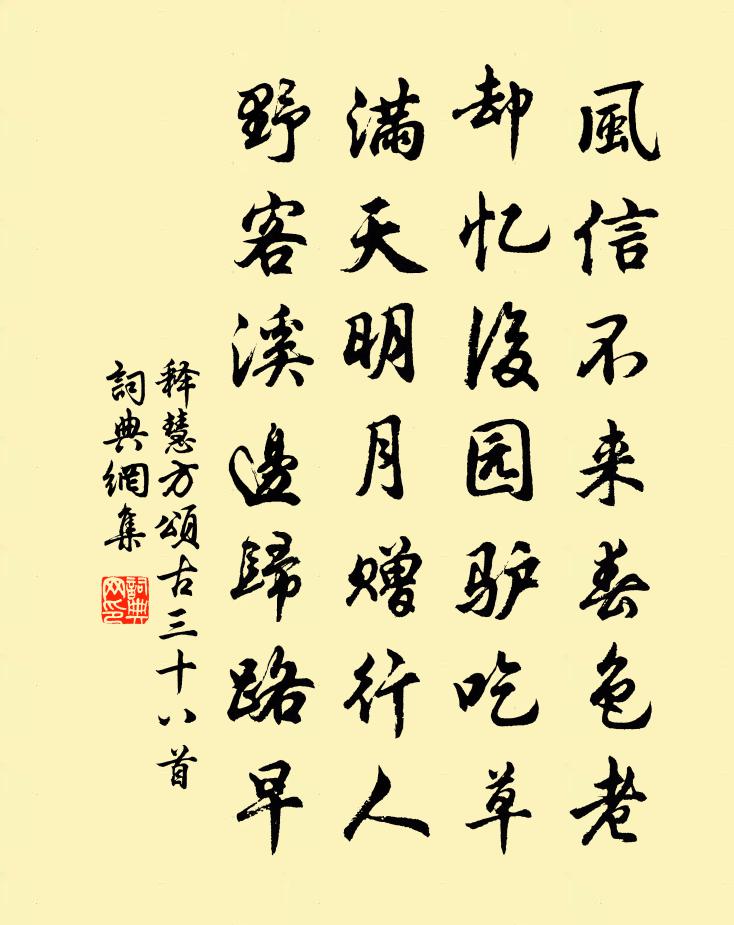 風信不来春色老
却忆後园驴吃草
满天明月赠行人
野客溪邊歸路早
释慧方頌古三十八首
詞典網集
詞典
网印